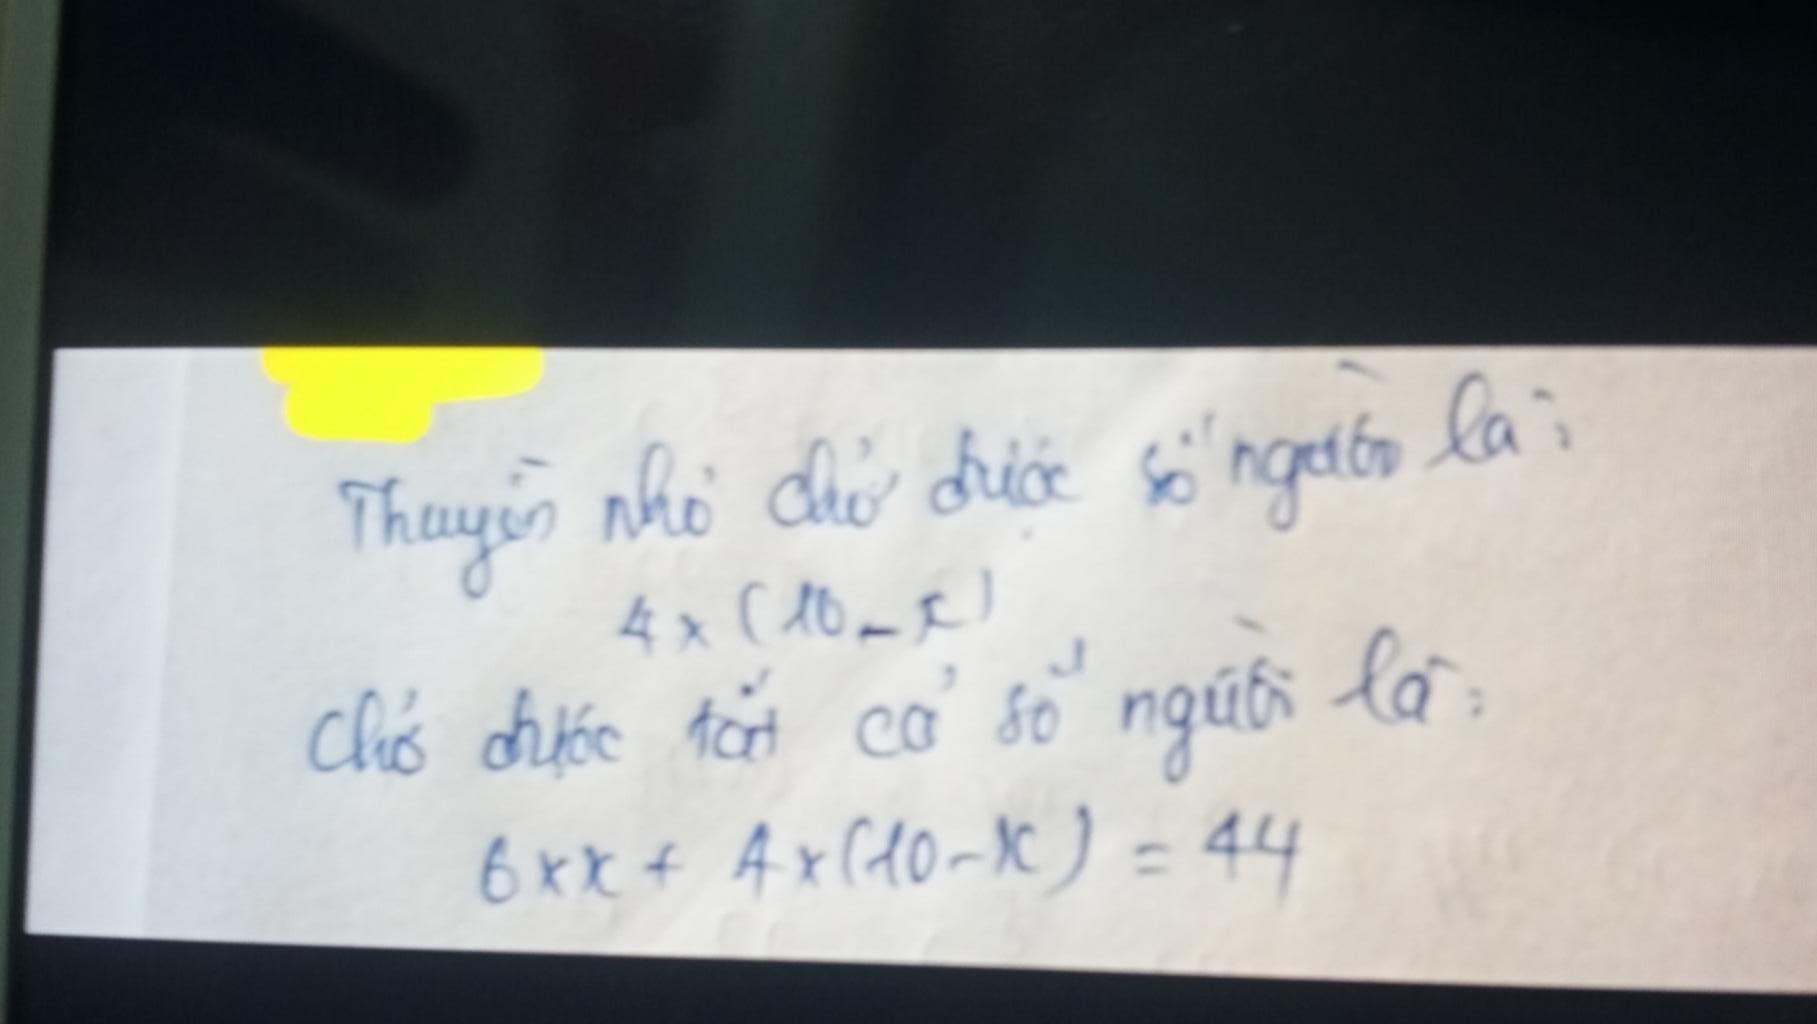 Thuyền nhỏ chở được số người là:
4 x (10 - x)
Chở được tất cả số người là:
6 x x + 4 x (10 - x) = 44